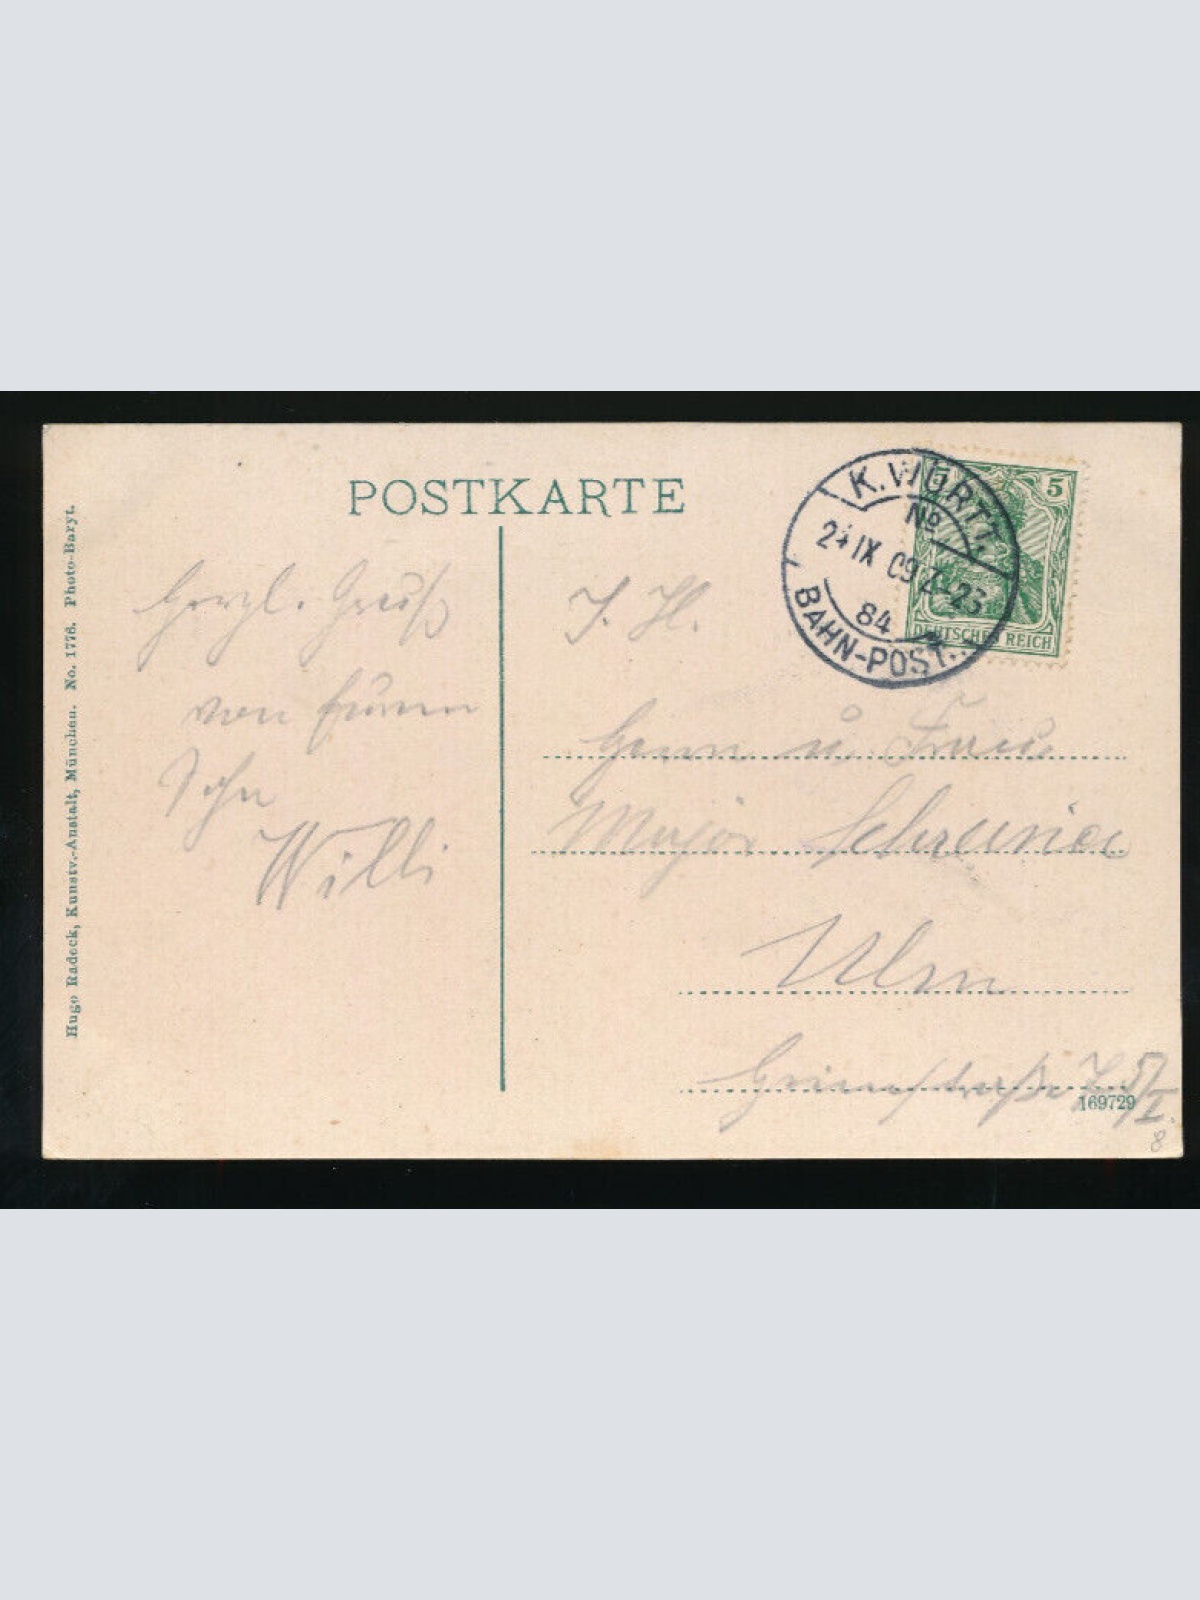 POSTKARTE
K. WÜRTT.
No
24 IX 09
84
BAHN-POST.
5
5
DEUTSCHES REICH
Hugo Radock, Kunstv.-Anstalt, München. No. 1776. Photo-Baryt.
Herzl. Gruß
von Eurem
Sohn
Willi
S. H.
Herrn u. Frau
Major
Ulm
169729
8